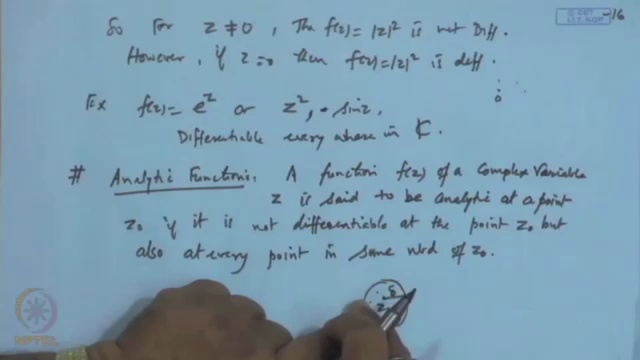 -16
© CET
I.I.T. KGP
So For z ≠ 0, The f(z) = |z|² is not Diff.
However, if z = 0 then f(z) = |z|² is diff.
Ex f(z) = e^z or z², sinz,
Differentiable every where in ℂ.
# Analytic Function: A function f(z) of a Complex Variable
z is said to be analytic at a point
z₀ if it is not differentiable at the point z₀ but
also at every point in some nbd of z₀.
δ
z₀
NPTEL